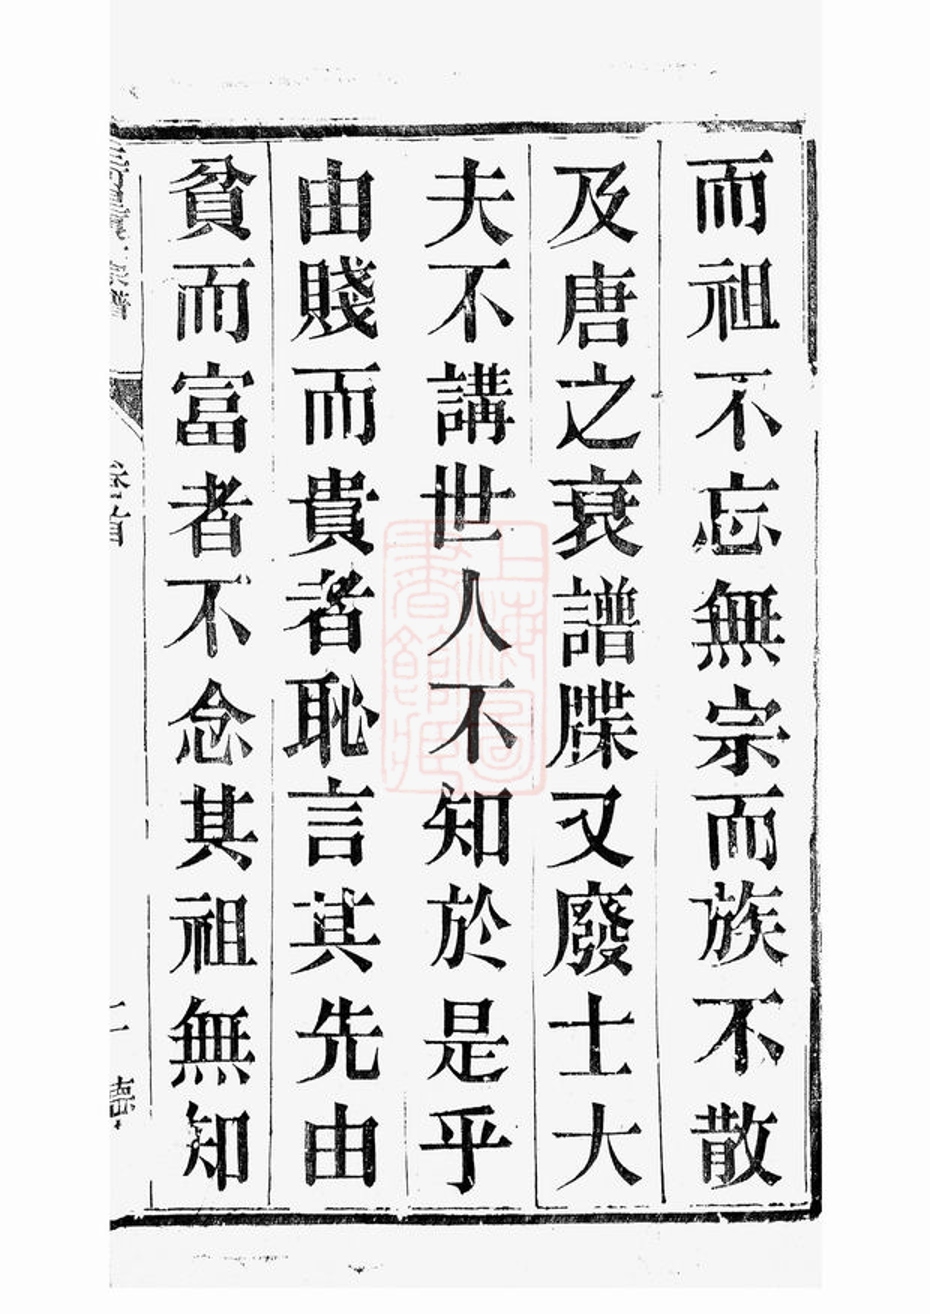 而祖不忘無宗而族不散
及唐之衰譜牒又廢士大
夫不講世人不知於是乎
由賤而貴者恥言其先由
貧而富者不念其祖無知
宗譜
卷首
上海圖
書館藏